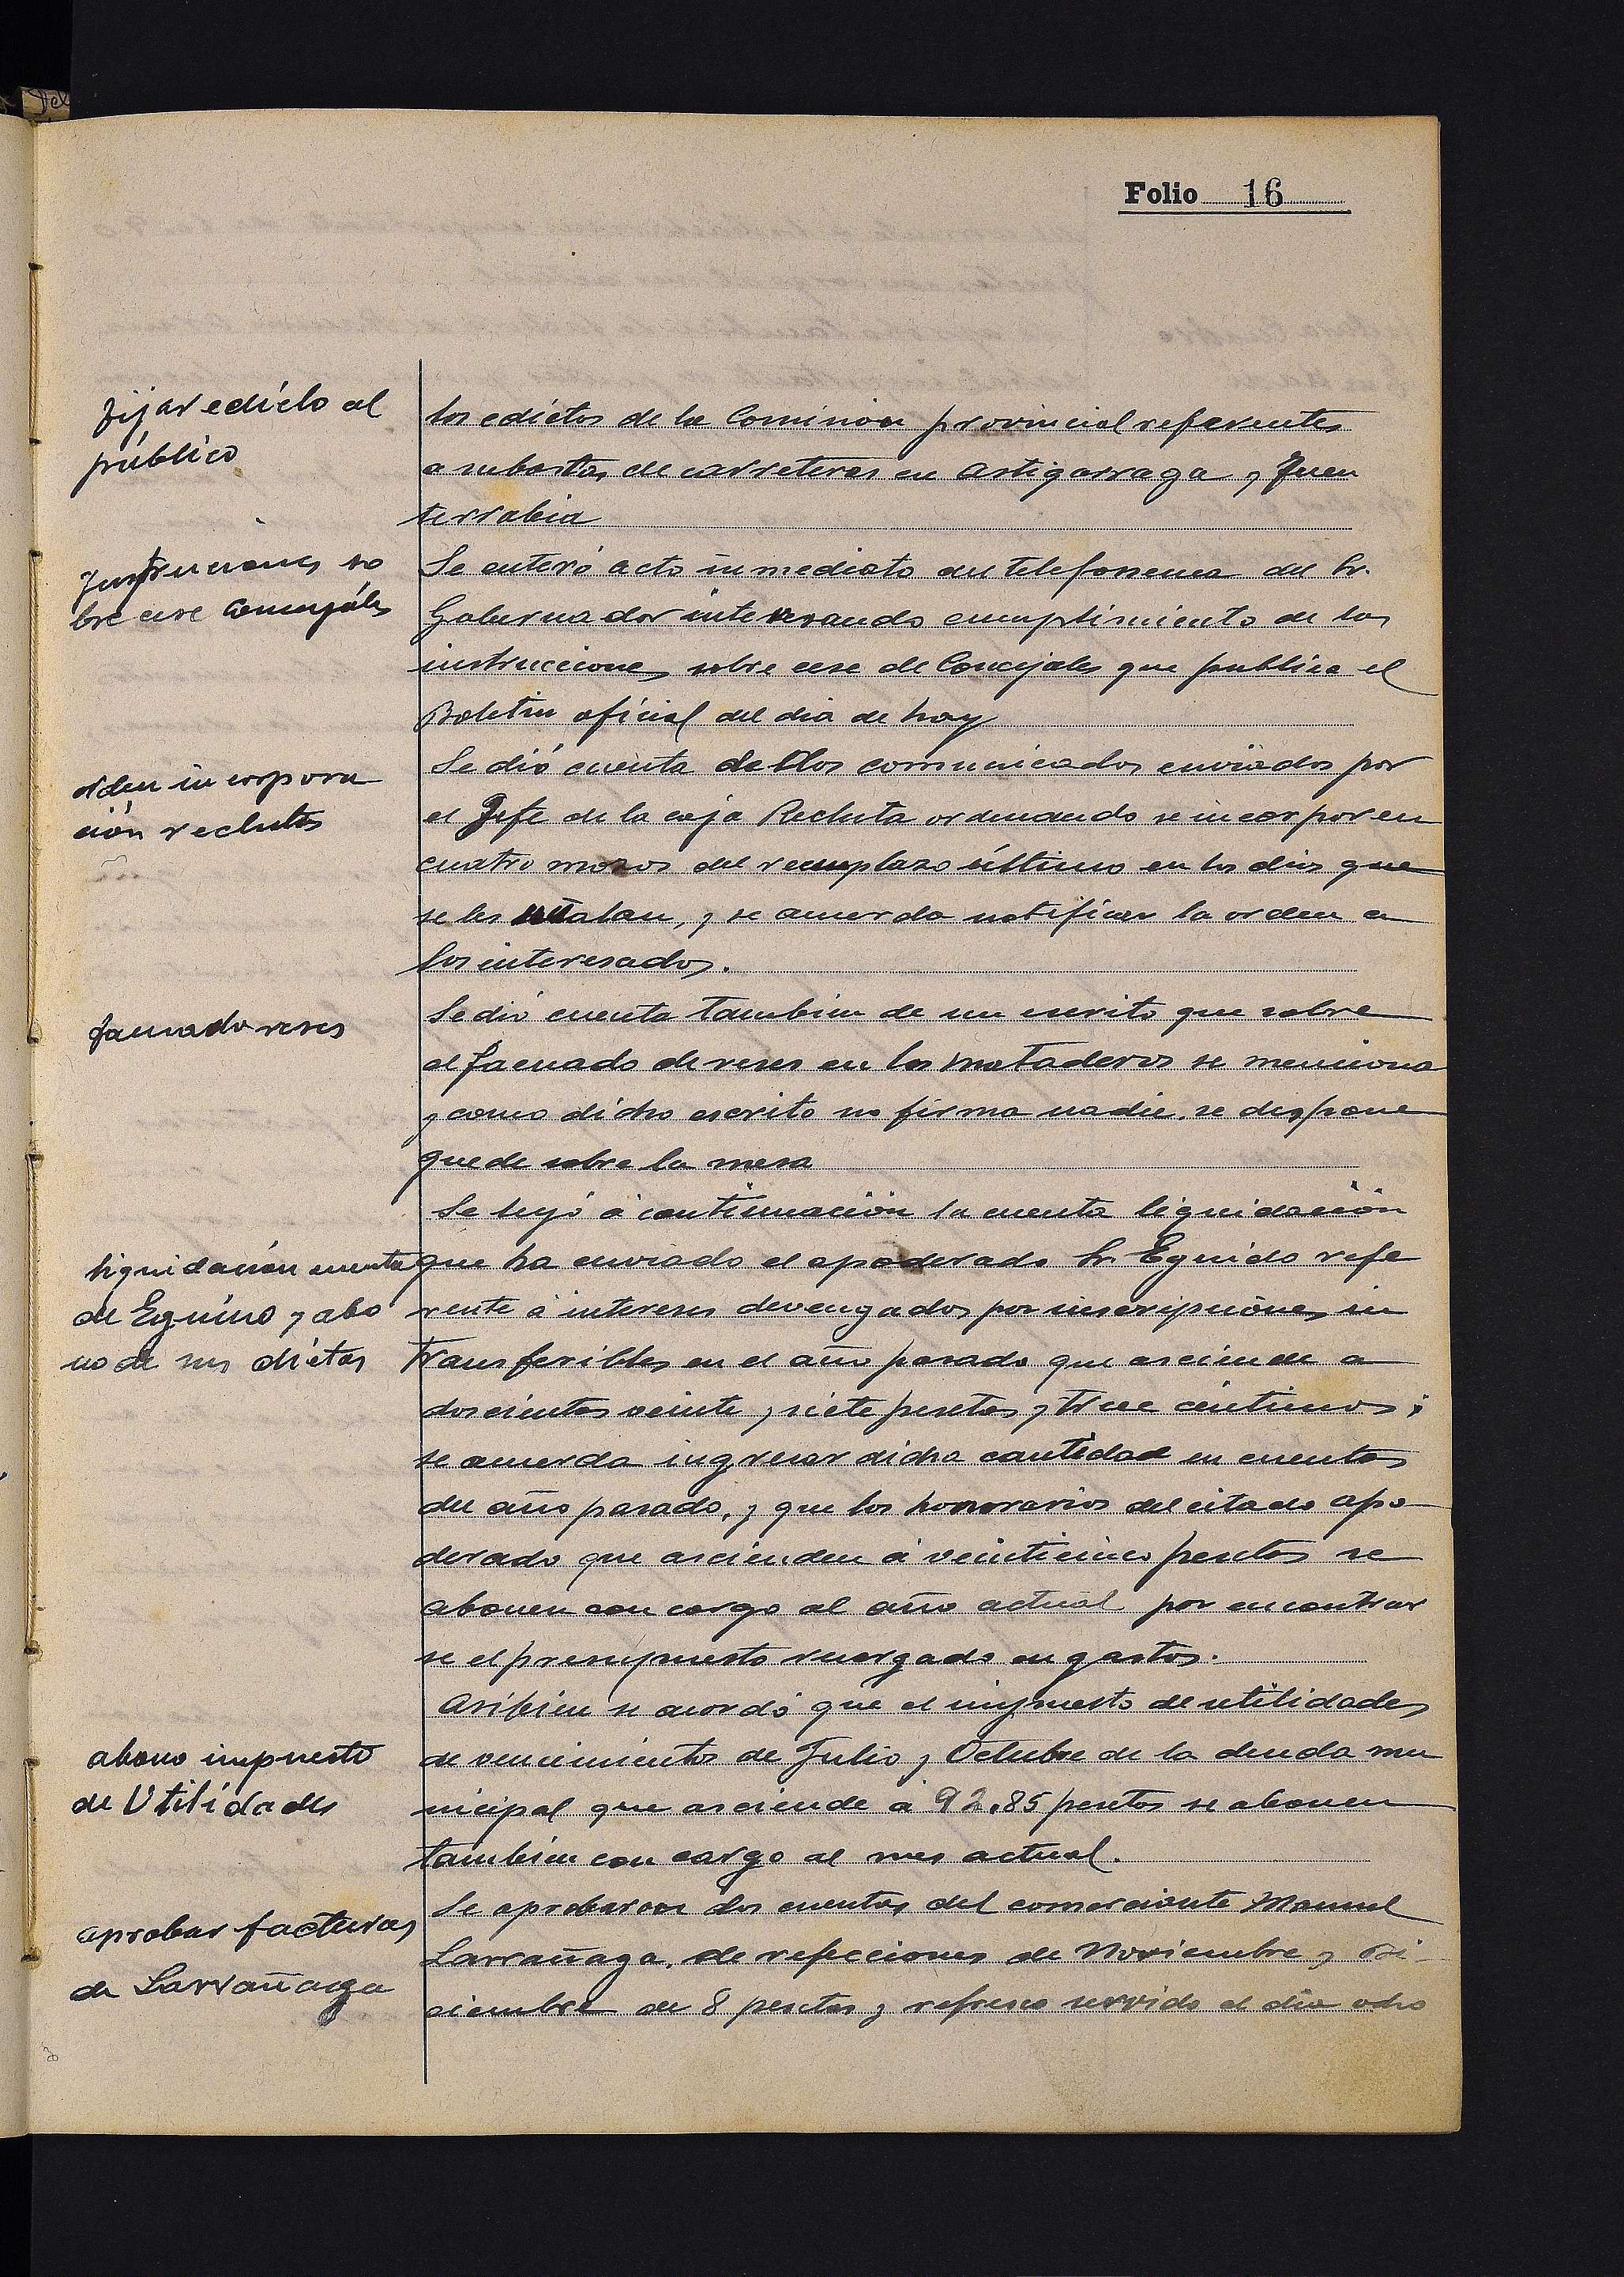 Folio 16
fijar edicto al
público
los edictos de la Comision provincial referentes
a subastas de carreteras en Astigarraga y Fuen
terrabia
Instrucciones so
bre cese Concejales
Se enteró acto inmediato del telefonema del Sr.
Gobernador interesando cumplimiento de las
instrucciones sobre cese de Concejales que publica el
Boletin oficial del dia de hoy
orden incorpora
ción reclutas
Se dió cuenta de los comunicados enviados por
el Jefe de la caja Recluta ordenando se incorporen
cuatro mozos del reemplazo último en los dias que
se les señalan, y se acuerda notificar la orden a
los interesados.
faenado reses
Se dió cuenta tambien de un escrito que sobre
el faenado de reses en los mataderos se menciona
y como dicho escrito no firma nadie, se dispone
quede sobre la mesa
Se leyó á continuación la cuenta liquidación
liquidación cuenta
de Eguino y abo
no de sus dietas
que ha enviado el apoderado Sr. Eguido refe
rente á intereses devengados por inscripciones in
transferibles en el año pasado que asciende a
doscientas veinte y siete pesetas y trece céntimos;
se acuerda ingresar dicha cantidad en cuentas
del año pasado, y que los honorarios del citado apo
derado que ascienden á veinticinco pesetas se
abonen con cargo al año actual por encontrar
se el presupuesto recargado en gastos.
Asibien se acordó que el impuesto de utilidades
abono impuesto
de Utilidades
de vencimientos de Julio y Octubre de la deuda mu
nicipal que asciende á 92.85 pesetas se abonen
tambien con cargo al mes actual.
aprobar facturas
de Larrañaga
Se aprobaron dos cuentas del comerciante Manuel
Larrañaga, de refecciones de Noviembre y Di-
ciembre de 8 pesetas y refresco servido el dia ocho